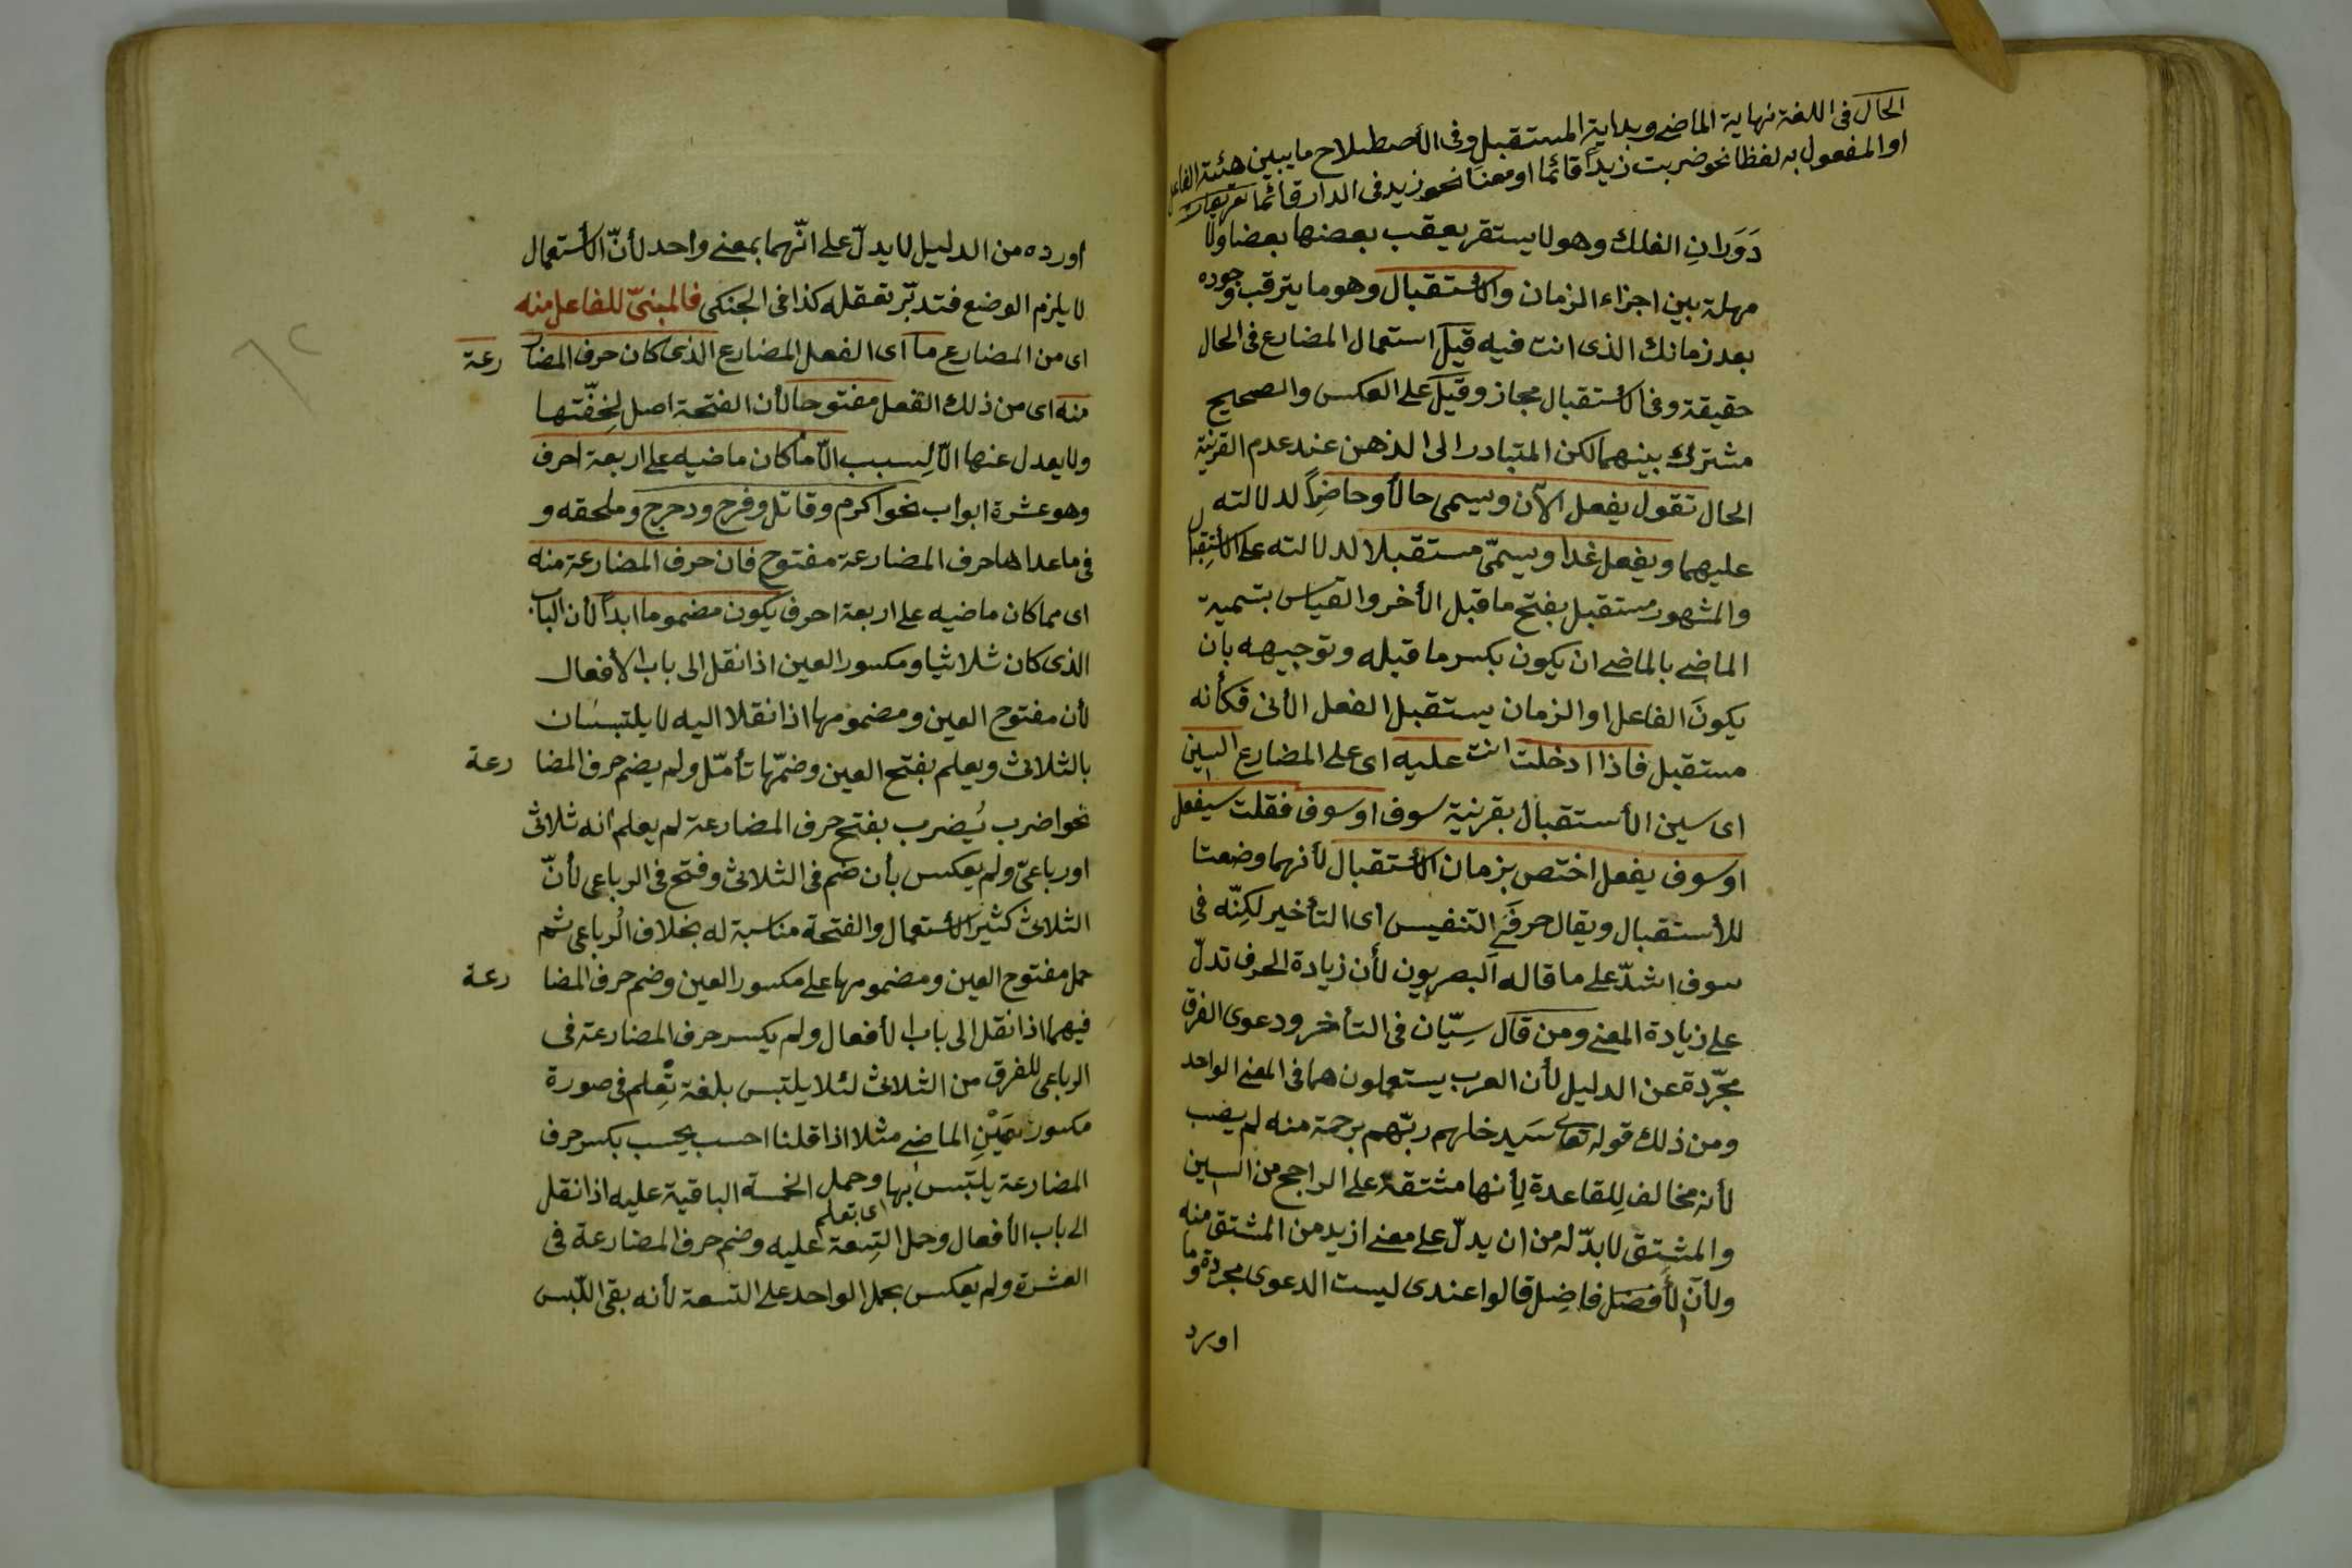 الحال فى اللغة نهاية الماضى وبداية المستقبل وفى الأصطلاح ما يبين هيئة الفاعل
او المفعول به لفظا نحو ضربت زيدا قائما او معنا نحو زيد فى الدار قائما تعريفات
دَوَرانِ الفلك وهو لا يستقر يعقب بعضها بعضا ولا
مهلة بين اجزاء الزمان والأستقبال وهو ما يترقب وجوده
بعد زمانك الذى انت فيه قيل استعمال المضارع فى الحال
حقيقة وفى الأستقبال مجاز وقيل على العكس والصحيح
مشترك بينهما لكن المتبادر الى الذهن عند عدم القرينة
الحال تقول يفعل الآن ويسمى حالاً وحاضِراً لدلالته
عليهما ويفعل غدا ويسمّى مستقبلا لدلالته على الأستِقبال
والمشهور مستقبل بفتح ما قبل الأخر والقياس بتسمية
الماضى بالماضى ان يكون بكسر ما قبله وتوجيهه بان
يكونَ الفاعل او الزمان يستقبل الفعل الأتى فكأنه
مستقبل فاذا ادخلت انت عليه اى على المضارع السين
اى سين الأستقبال بقرينة سوف او سوف فقلت سيفعل
او سوف يفعل اختص بزمان الأستقبال لأنهما وضعتا
للأستقبال ويقال حرفَىِ التنفيس اى التأخير لكِنّه فى
سوف اشدّ على ما قاله البصريون لأن زيادة الحرف تدلّ
على زيادة المعنى ومن قال سِيّان فى التأخر ودعوى الفرق
مجرّدة عن الدليل لأن العرب يستعملون هما فى المعنى الواحد
ومن ذلك قوله تعالى سَيدخلهم ربّهم برحمة منه لم يصب
لأنه مخالف لِلقاعدة لِأنها مشتقة على الراجح من السين
والمشتِق لا بدّ له من ان يدلّ على معنى ازيد من المشتق منه
ولأن لأفضَل فاضِل قالوا عندى ليست الدعوى مجردة وما
اورد
اورده من الدليل لا يدلّ على انّهما بمعنى واحد لأنّ الأستعمال
لا يلزم الوضع فتدبّر تعقله كذا فى الجنكى فالمبنىّ للفاعل منه
اى من المضارع ما اى الفعل المضارع الذى كان حرف المضارعة
منه اى من ذلك الفعل مفتوحا لأن الفتحة اصل لِخفّتها
ولا يعدل عنها الّا لِسبب الّا ما كان ماضيه على اربعة احرف
وهو عشرة ابواب نحو اكرم وقاتل وفرح ودحرج وملحقه و
فى ما عداها حرف المضارعة مفتوح فان حرف المضارعة منه
اى مما كان ماضيه على اربعة احرف يكون مضموما ابداً لأن الباب
الذى كان ثلاثيا ومكسور العين اذا نقل الى باب الأفعال
لأن مفتوح العين ومضمومها اذا نقلا اليه لا يلتبسان
بالثلاثى ويعلم بفتح العين وضمّها تأمّل ولم يضم حرف المضارعة
نحو اضرب يُضرب بفتح حرف المضارعة لم يعلم انه ثلاثى
او رباعىّ ولم يعكس بأن ضم فى الثلاثى وفتح فى الرباعى لأنّ
الثلاثى كثير الأستعمال والفتحة مناسبة له بخلاف الرُباعى ثم
حمل مفتوح العين ومضمومها على مكسور العين وضم حرف المضارعة
فيهما اذا نقل الى باب الأفعال ولم يكسر حرف المضارعة فى
الرباعى للفرق من الثلاثى لئلا يلتبس بلغة تِعلم فى صورة
مكسور عَيْنِ الماضى مثلا اذا قلنا احسب يحسب بكسر حرف
المضارعة يلتبس بها وحمل الخمسة الباقية عليه اذا نقل
اى بتعلم
الى باب الأفعال وحمل التِسعة عليه وضم حرف المضارعة فى
العشرة ولم يعكس بحمل الواحد على التسعة لأنه بقى اللّبس